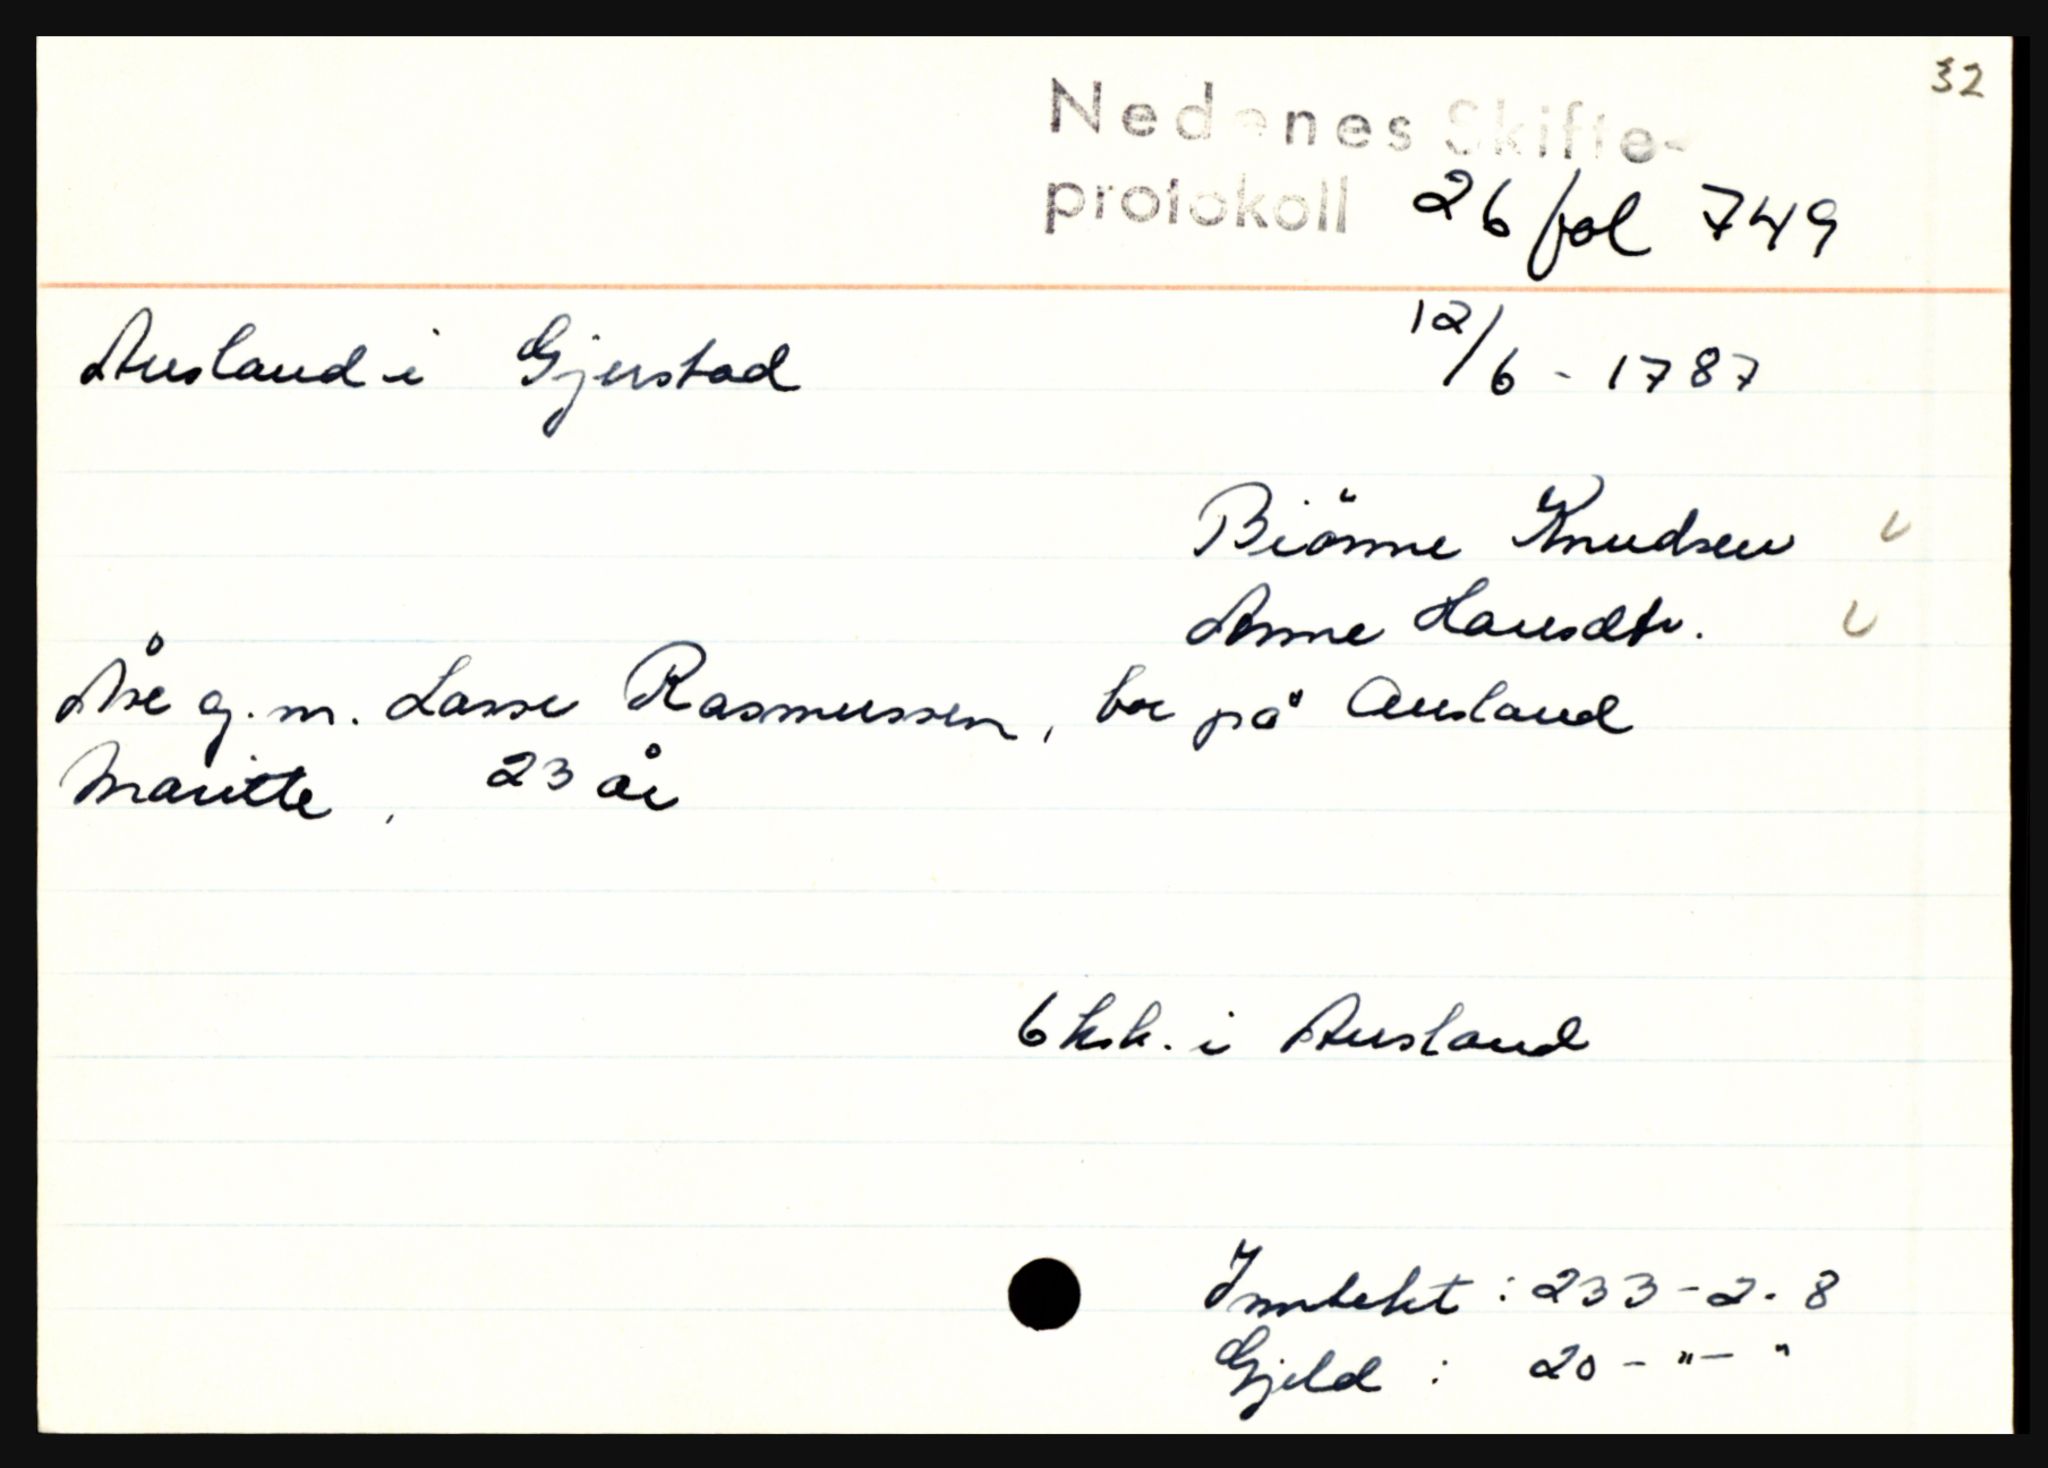 32
Nedenes Skifte-
protokoll 26 fol 749
Ausland i Gjerstad 12/6 - 1787
Biönne Knudsen
Anne Hansdtr.
Åse g.m. Lasse Rasmussen, bor på Ausland
Maritte, 23 år
6 ksk. i Ausland
Inntekt : 233 - 2 - 8
Gjeld : 20 - " - "